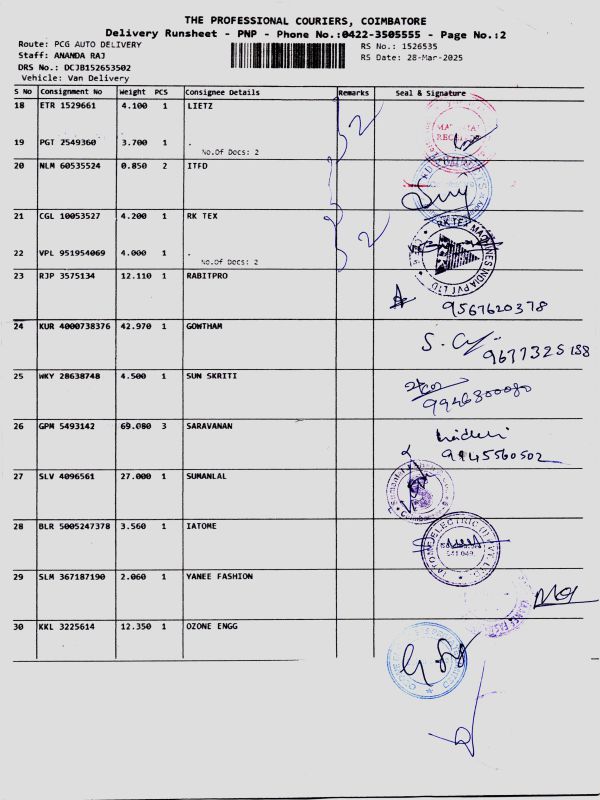 THE PROFESSIONAL COURIERS, COIMBATORE
Delivery Runsheet - PNP - Phone No.:0422-3505555 - Page No.:2
Route: PCG AUTO DELIVERY RS No.: 1526535
Staff: ANANDA RAJ RS Date: 28-Mar-2025
DRS No.: DCJB152653502
Vehicle: Van Delivery
S No Consignment No Weight PCS Consignee Details Remarks Seal & Signature
18 ETR 1529661 4.100 1 LIETZ
2
19 PGT 2549360 3.700 1 .
No.Of Docs: 2
20 NLM 60535524 0.850 2 ITFD
21 CGL 10053527 4.200 1 RK TEX
RK TEX MACHINES INDIA PVT LTD
2
22 VPL 951954069 4.000 1 .
No.Of Docs: 2
23 RJP 3575134 12.110 1 RABITPRO
9567620378
24 KUR 4000738376 42.970 1 GOWTHAM
9677325188
25 WKY 28638748 4.500 1 SUN SKRITI
9946800080
26 GPM 5493142 69.080 3 SARAVANAN
9945560502
27 SLV 4096561 27.000 1 SUMANLAL
28 BLR 5005247378 3.560 1 IATOME
29 SLM 367187190 2.060 1 YANEE FASHION
30 KKL 3225614 12.350 1 OZONE ENGG